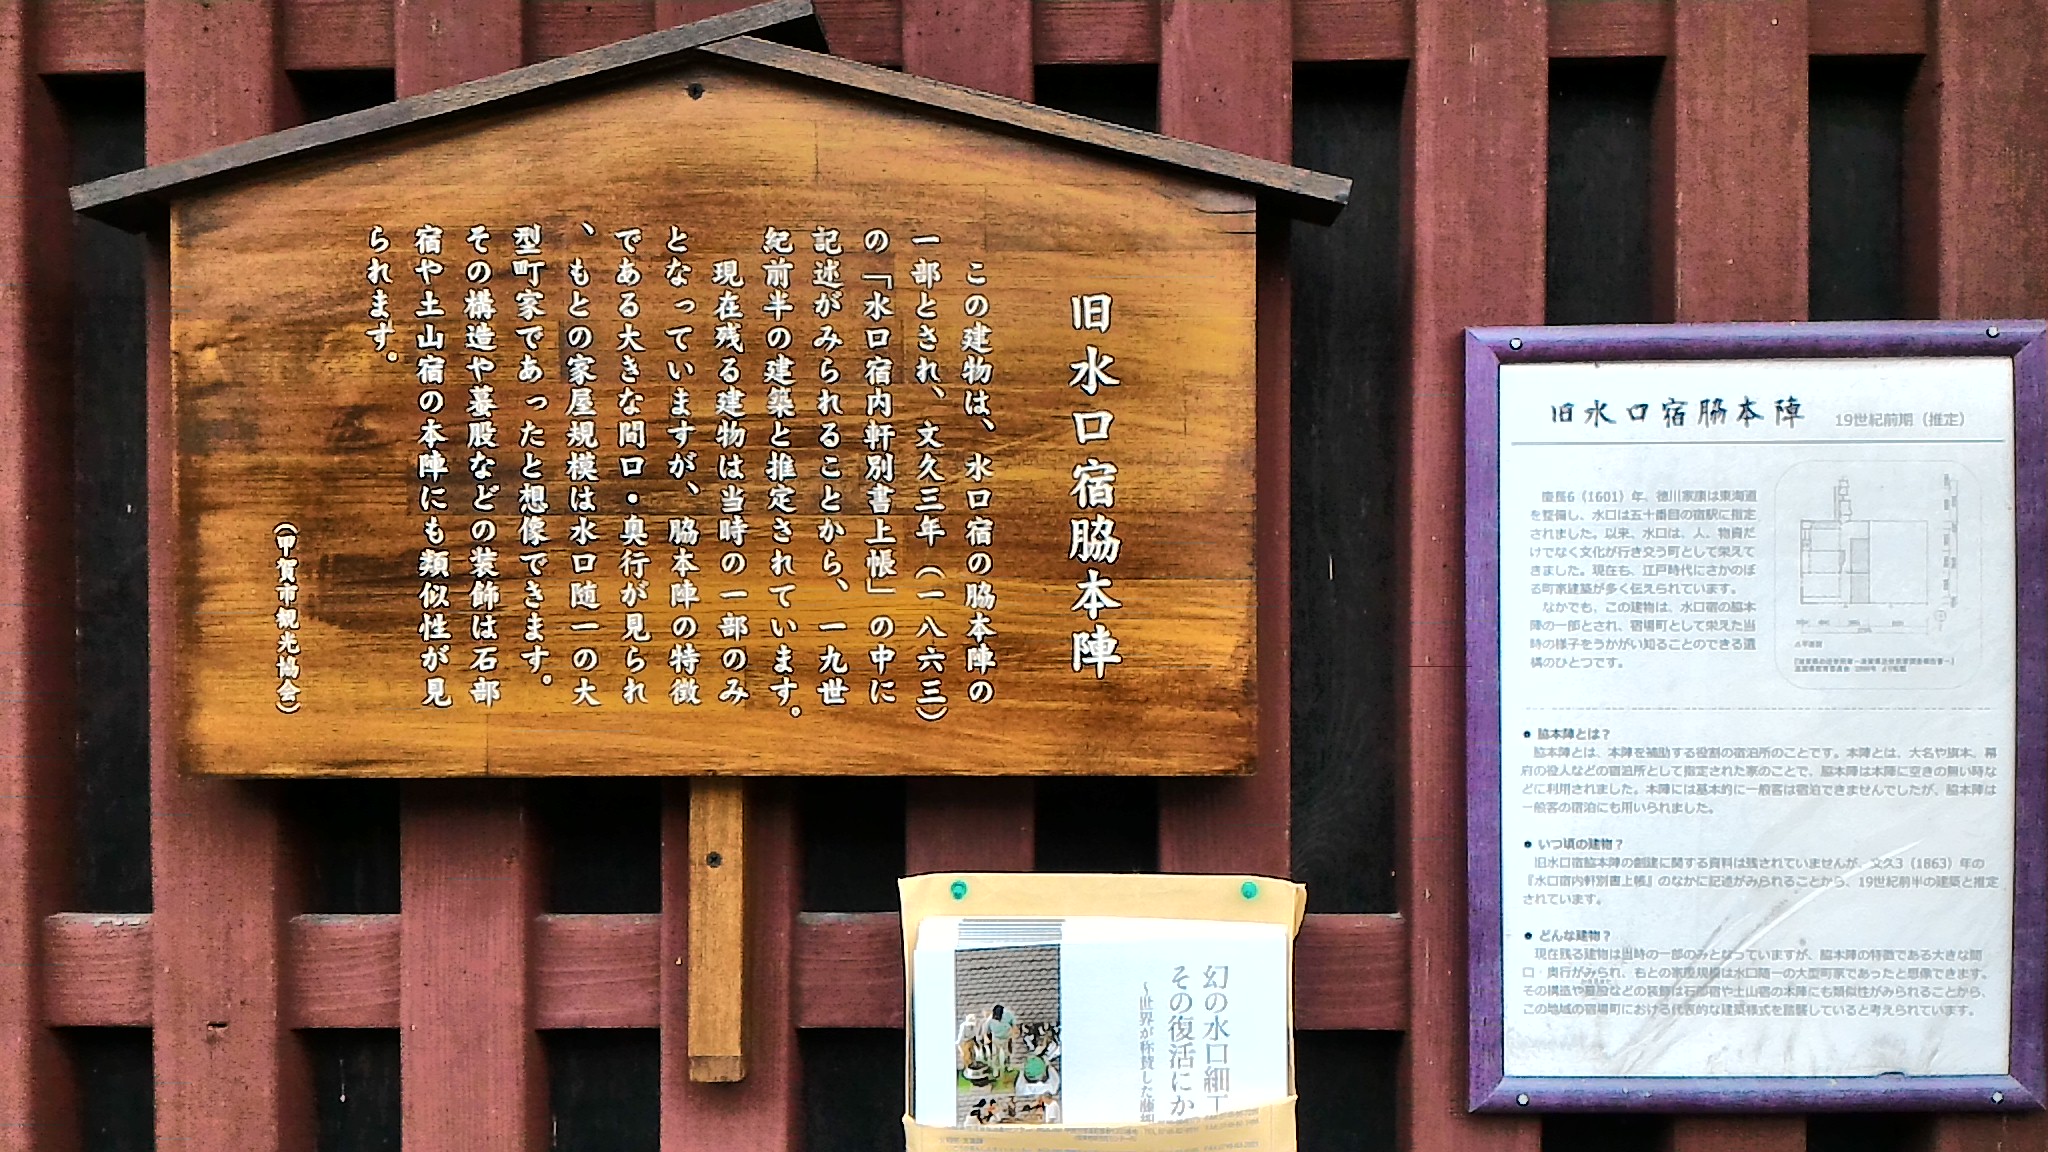 旧水口宿脇本陣
この建物は、水口宿の脇本陣の
一部とされ、文久三年(一八六三)
の「水口宿内軒別書上帳」の中に
記述がみられることから、一九世
紀前半の建築と推定されています。
現在残る建物は当時の一部のみ
となっていますが、脇本陣の特徴
である大きな間口・奥行が見られ
、もとの家屋規模は水口随一の大
型町家であったと想像できます。
その構造や蟇股などの装飾は石部
宿や土山宿の本陣にも類似性が見
られます。
(甲賀市観光協会)
旧水口宿脇本陣 19世紀前期(推定)
慶長6(1601)年、徳川家康は東海道
を整備し、水口は五十番目の宿駅に指定
されました。以来、水口は、人、物資だ
けでなく文化が行き交う町として栄えて
きました。現在も、江戸時代にさかのぼ
る町家建築が多く伝えられています。
なかでも、この建物は、水口宿の脇本
陣の一部とされ、宿場町として栄えた当
時の様子をうかがい知ることのできる遺
構のひとつです。
● 脇本陣とは?
脇本陣とは、本陣を補助する役割の宿泊所のことです。本陣とは、大名や旗本、幕
府の役人などの宿泊所として指定された家のことで、脇本陣は本陣に空きの無い時な
どに利用されました。本陣には基本的に一般客は宿泊できませんでしたが、脇本陣は
一般客の宿泊にも用いられました。
● いつ頃の建物?
旧水口宿脇本陣の創建に関する資料は残されていませんが、文久3(1863)年の
『水口宿内軒別書上帳』のなかに記述がみられることから、19世紀前半の建築と推定
されています。
● どんな建物?
現在残る建物は当時の一部のみとなっていますが、脇本陣の特徴である大きな間
口・奥行がみられ、もとの家屋規模は水口随一の大型町家であったと想像できます。
その構造や蟇股などの装飾は石部宿や土山宿の本陣にも類似性がみられることから、
この地域の宿場町における代表的な建築様式を踏襲していると考えられています。
幻の水口細工
その復活にか
~世界が称賛した藤